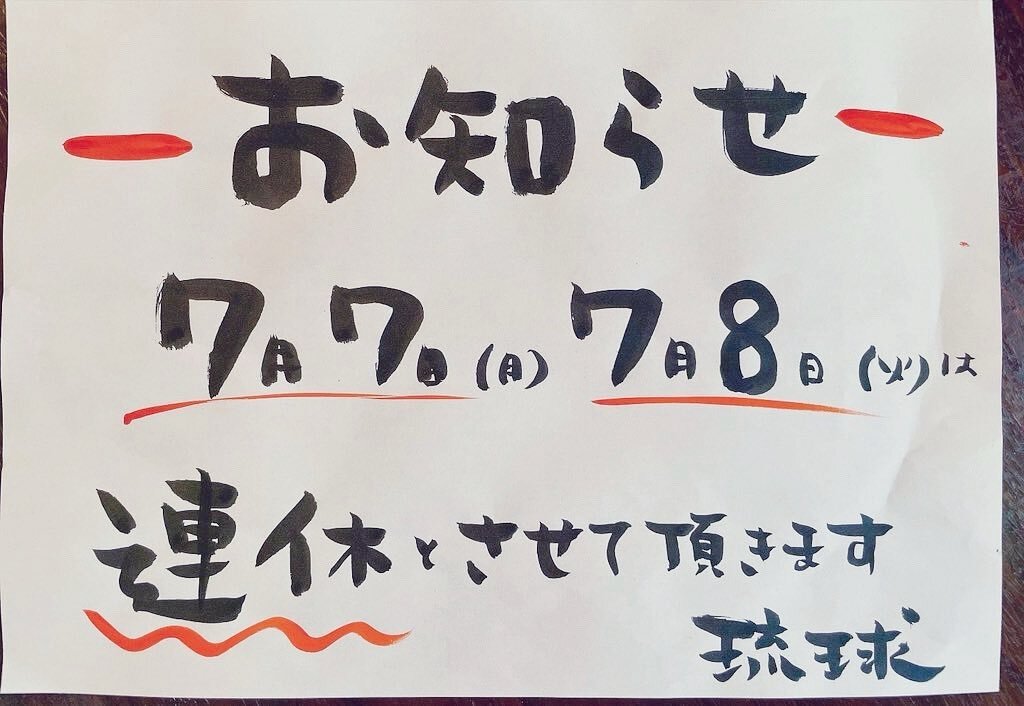 お知らせ
7月7日(月) 7月8日(火)は
連休とさせて頂きます
琉球